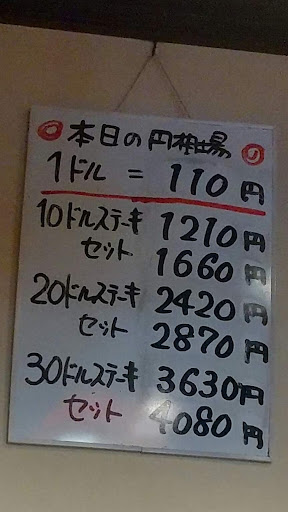 本日の円相場
1ドル = 110円
10ドルステーキ 1210円
セット 1660円
20ドルステーキ 2420円
セット 2870円
30ドルステーキ 3630円
セット 4080円